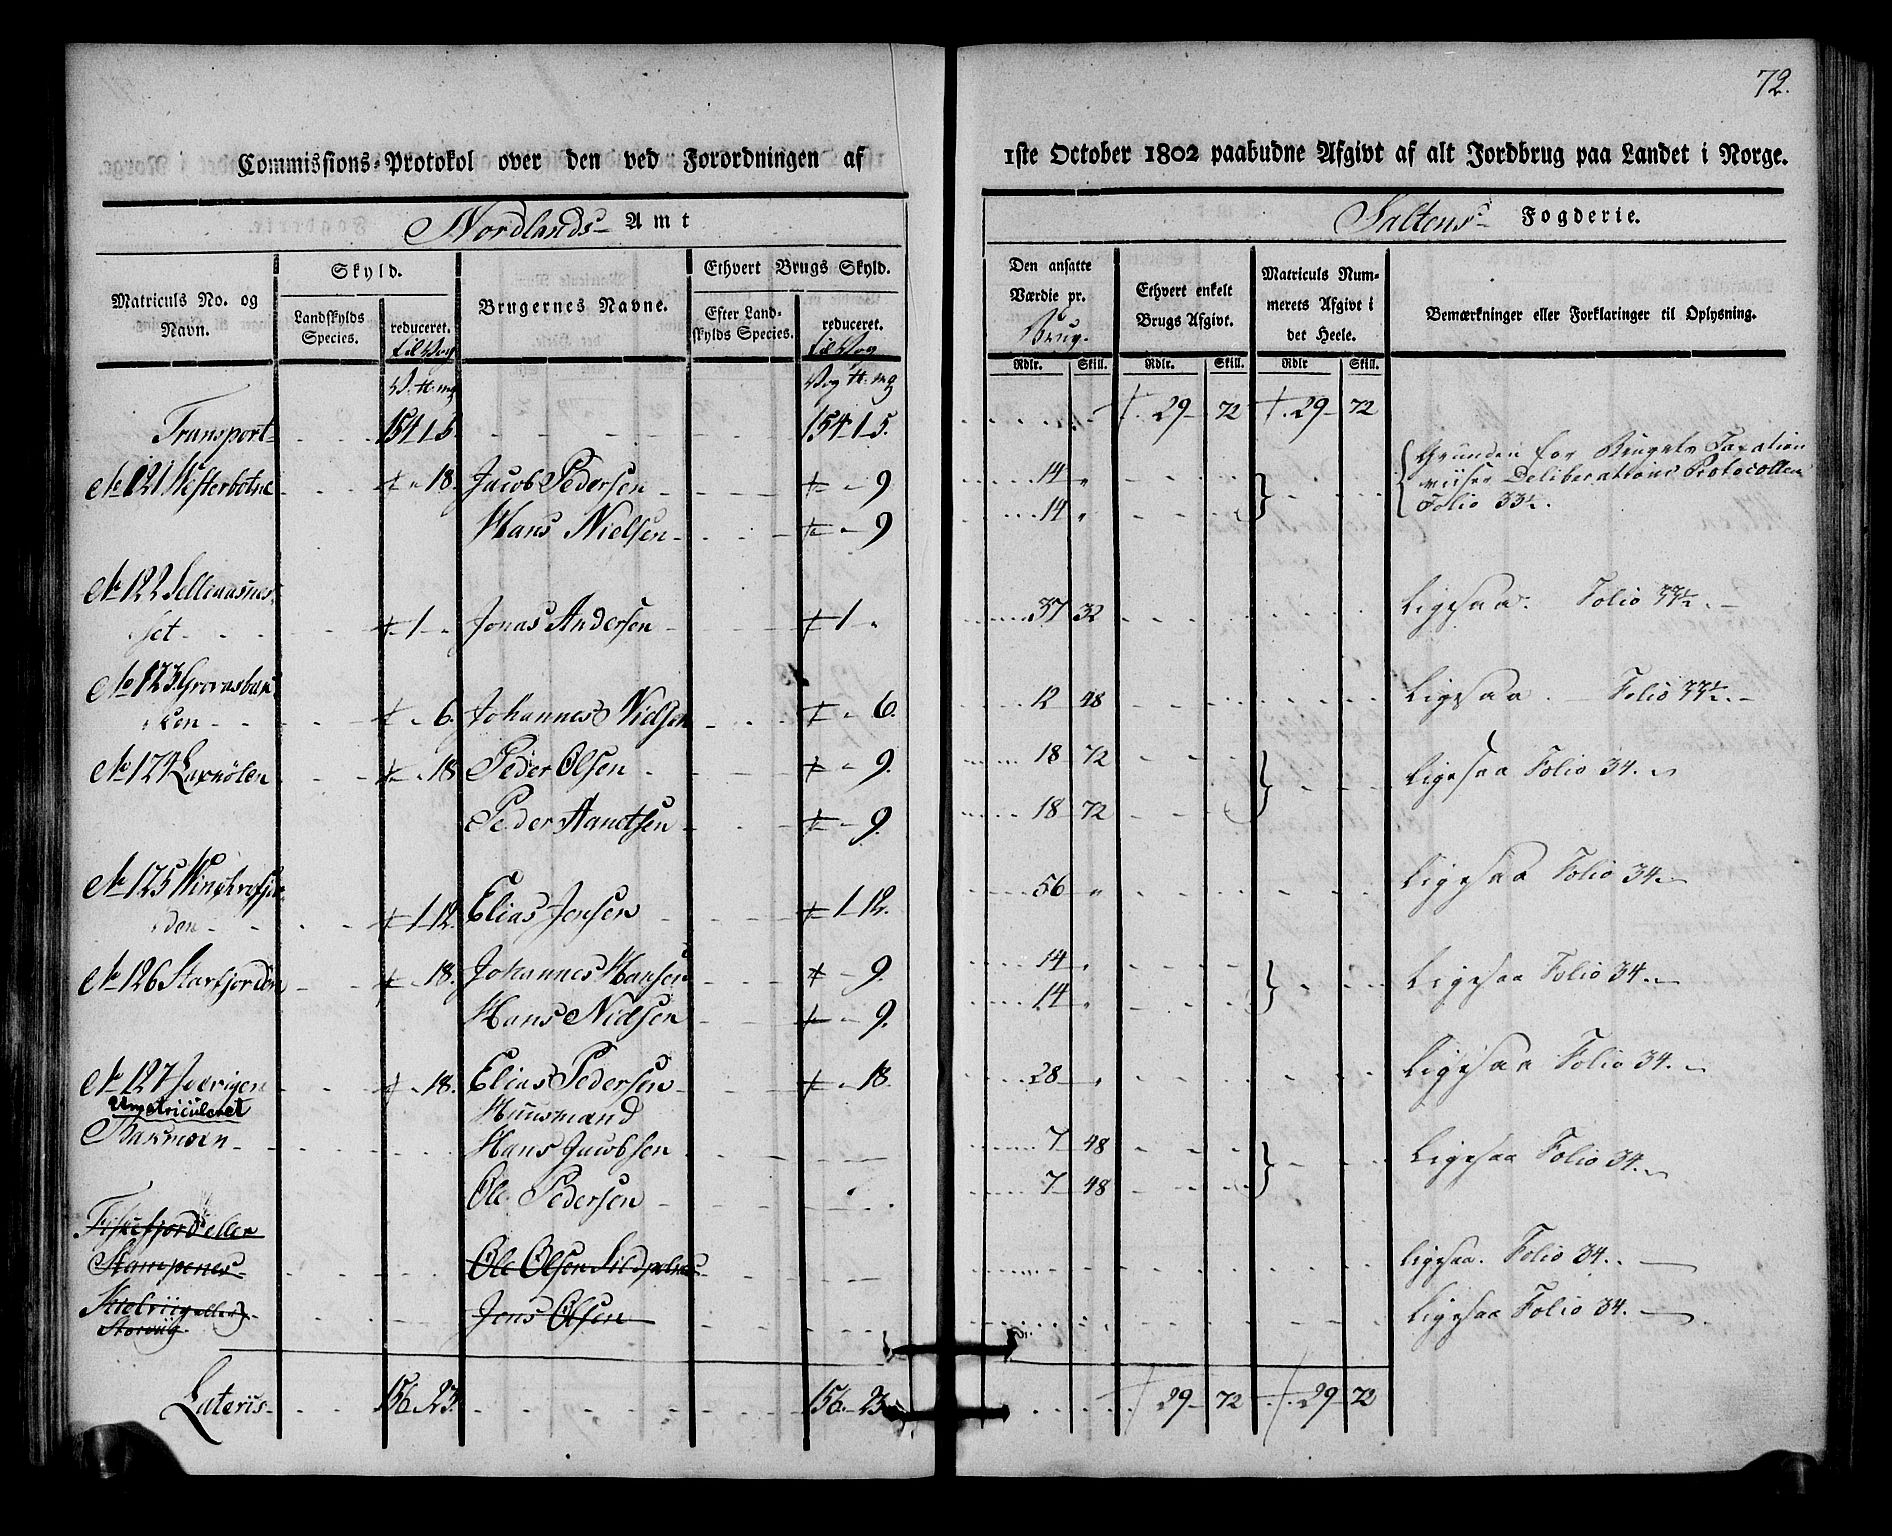 72.
Commissions-Protokol over den ved Forordningen af 1ste October 1802 paabudne Afgivt af alt Jordbrug paa Landet i Norge.
Nordlands Amt
Saltens Fogderie.
Matriculs No. og Navn.
Skyld.
Landskylds Species.
reduceret. til Vog
Brugernes Navne.
Ethvert Brugs Skyld.
Efter Landskylds Species.
reduceret. til Vog
Den ansatte Værdie pr. Brug.
Ethvert enkelt Brugs Afgivt.
Matriculs Nummerets Afgivt i det Heele.
Bemærkninger eller Forklaringer til Oplysning.
Rdlr. Skill. Rdlr. Skill. Rdlr Skill.
Transport 154 1 5 154 1 5. 29 72 29 72
No 121 Westerbotne 18. Jacob Pedersen 9 14 Grunden for Brugets Taxation
viiser Deliberations Protocollen
Hans Nielsen 9 14 Folio 33½.
No 122
set 1 Jonas Andersen 1 37 32 Ligesaa. Folio 33½.
No 123
ken 6. Johannes Nielsen 6. 12 48 Ligesaa. Folio 33½.
No 124 18 Peder Olsen 9. 18 72 Ligesaa Folio 34.
Peder 9. 18 72
No 125
den 1 12. Elias Jensen 1 12. 56 Ligesaa Folio 34.
No 126 18. Johannes Hansen 9. 14 Ligesaa Folio 34.
Hans Nielsen 9. 14
No 127 18. Elias Pedersen 18. 28 Ligesaa Folio 34.
Umatriculeret Huusmænd
Hans Jacobsen 7 48 Ligesaa Folio 34.
Ole Pedersen 7 48
Fiskefjord eller
Stampenes Ole Olsen Ligesaa. Folio 34.
eller
Storviig Jens Olsen Ligesaa Folio 34.
Lateris 156 23. 156 23 29 72 29 72